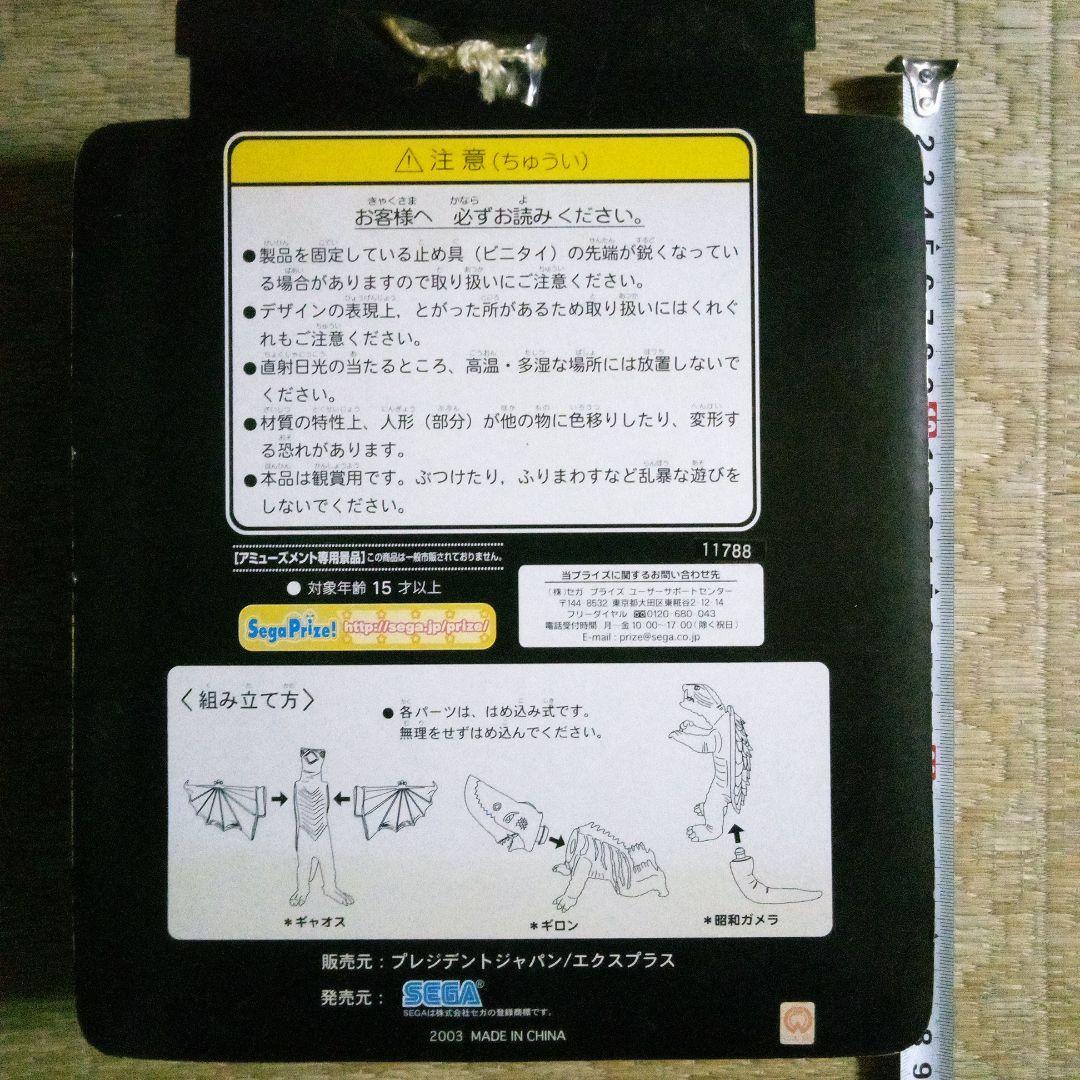 ⚠注意(ちゅうい)
お客様へ 必ずお読みください。
●製品を固定している止め具(ビニタイ)の先端が鋭くなってい
る場合がありますので取り扱いにご注意ください。
●デザインの表現上，とがった所があるため取り扱いにはくれぐ
れもご注意ください。
●直射日光の当たるところ、高温・多湿な場所には放置しないで
ください。
●材質の特性上、人形(部分)が他の物に色移りしたり、変形す
る恐れがあります。
●本品は観賞用です。ぶつけたり，ふりまわすなど乱暴な遊びを
しないでください。
[アミューズメント専用景品]この商品は一般市販されておりません。
11788
●対象年齢 15 才以上
SegaPrize! http://sega.jp/prize/
当プライズに関するお問い合わせ先
(株)セガ プライズ ユーザーサポートセンター
〒144-8532 東京都大田区東糀谷2-12-14
フリーダイヤル 0120-680-043
電話受付時間 月―金 10:00〜17:00(除く祝日)
E-mail : prize@sega.co.jp
〈組み立て方〉
●各パーツは、はめ込み式です。
無理をせずはめ込んでください。
*ギャオス
*ギロン
*昭和ガメラ
販売元：プレジデントジャパン/エクスプラス
発売元： SEGA®
SEGAは株式会社セガの登録商標です。
2003 MADE IN CHINA